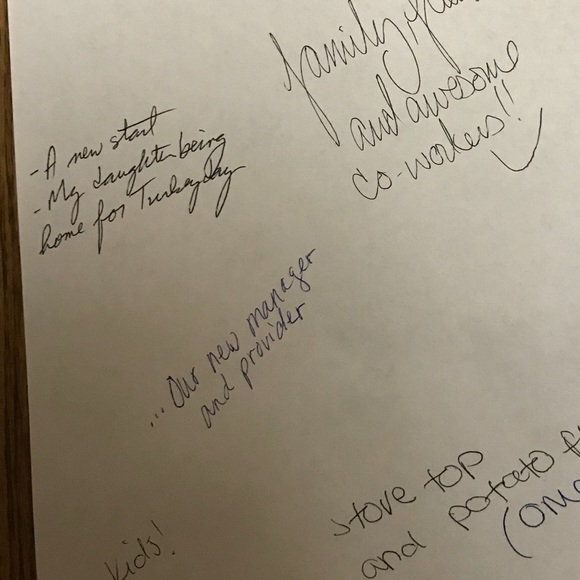 family,
and awesome
co-workers!!
- A new start
- My daughter being
home for Turkeyday
... Our new manager
and provider
stove top
and potato
(
kids!